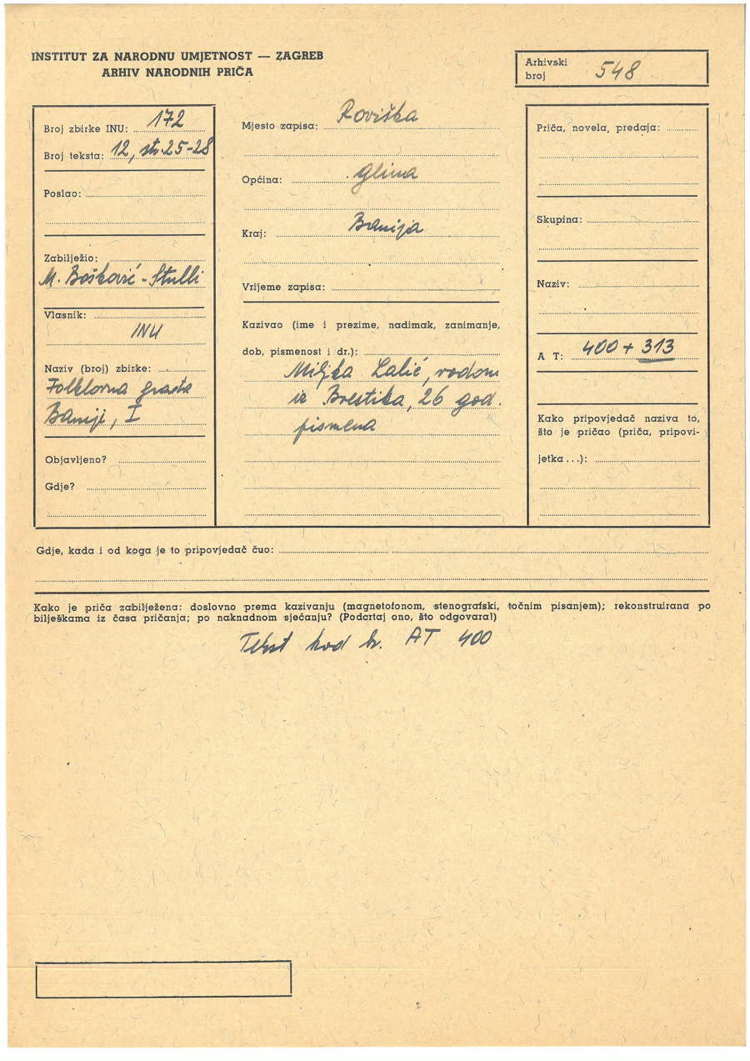 INSTITUT ZA NARODNU UMJETNOST — ZAGREB
ARHIV NARODNIH PRIČA
Arhivski
broj 548
Broj zbirke INU: 172
Broj teksta: 12, str. 25-28
Poslao:
Zabilježio:
M. Bošković-Stulli
Vlasnik:
INU
Naziv (broj) zbirke:
Folklorna građa
Baniji, I
Objavljeno?
Gdje?
Mjesto zapisa: Roviška
Općina: Glina
Kraj: Banija
Vrijeme zapisa:
Kazivao (ime i prezime, nadimak, zanimanje,
dob, pismenost i dr.):
Miljka Lalić, rodom
iz Brestika, 26 god.
pismena
Priča, novela, predaja:
Skupina:
Naziv:
A T: 400 + 313
Kako pripovjedač naziva to,
što je pričao (priča, pripovi-
jetka...):
Gdje, kada i od koga je to pripovjedač čuo:
Kako je priča zabilježena: doslovno prema kazivanju (magnetofonom, stenografski, točnim pisanjem); rekonstruirana po
bilješkama iz časa pričanja; po naknadnom sjećanju? (Podcrtaj ono, što odgovara!)
Tekst kod br. AT 400